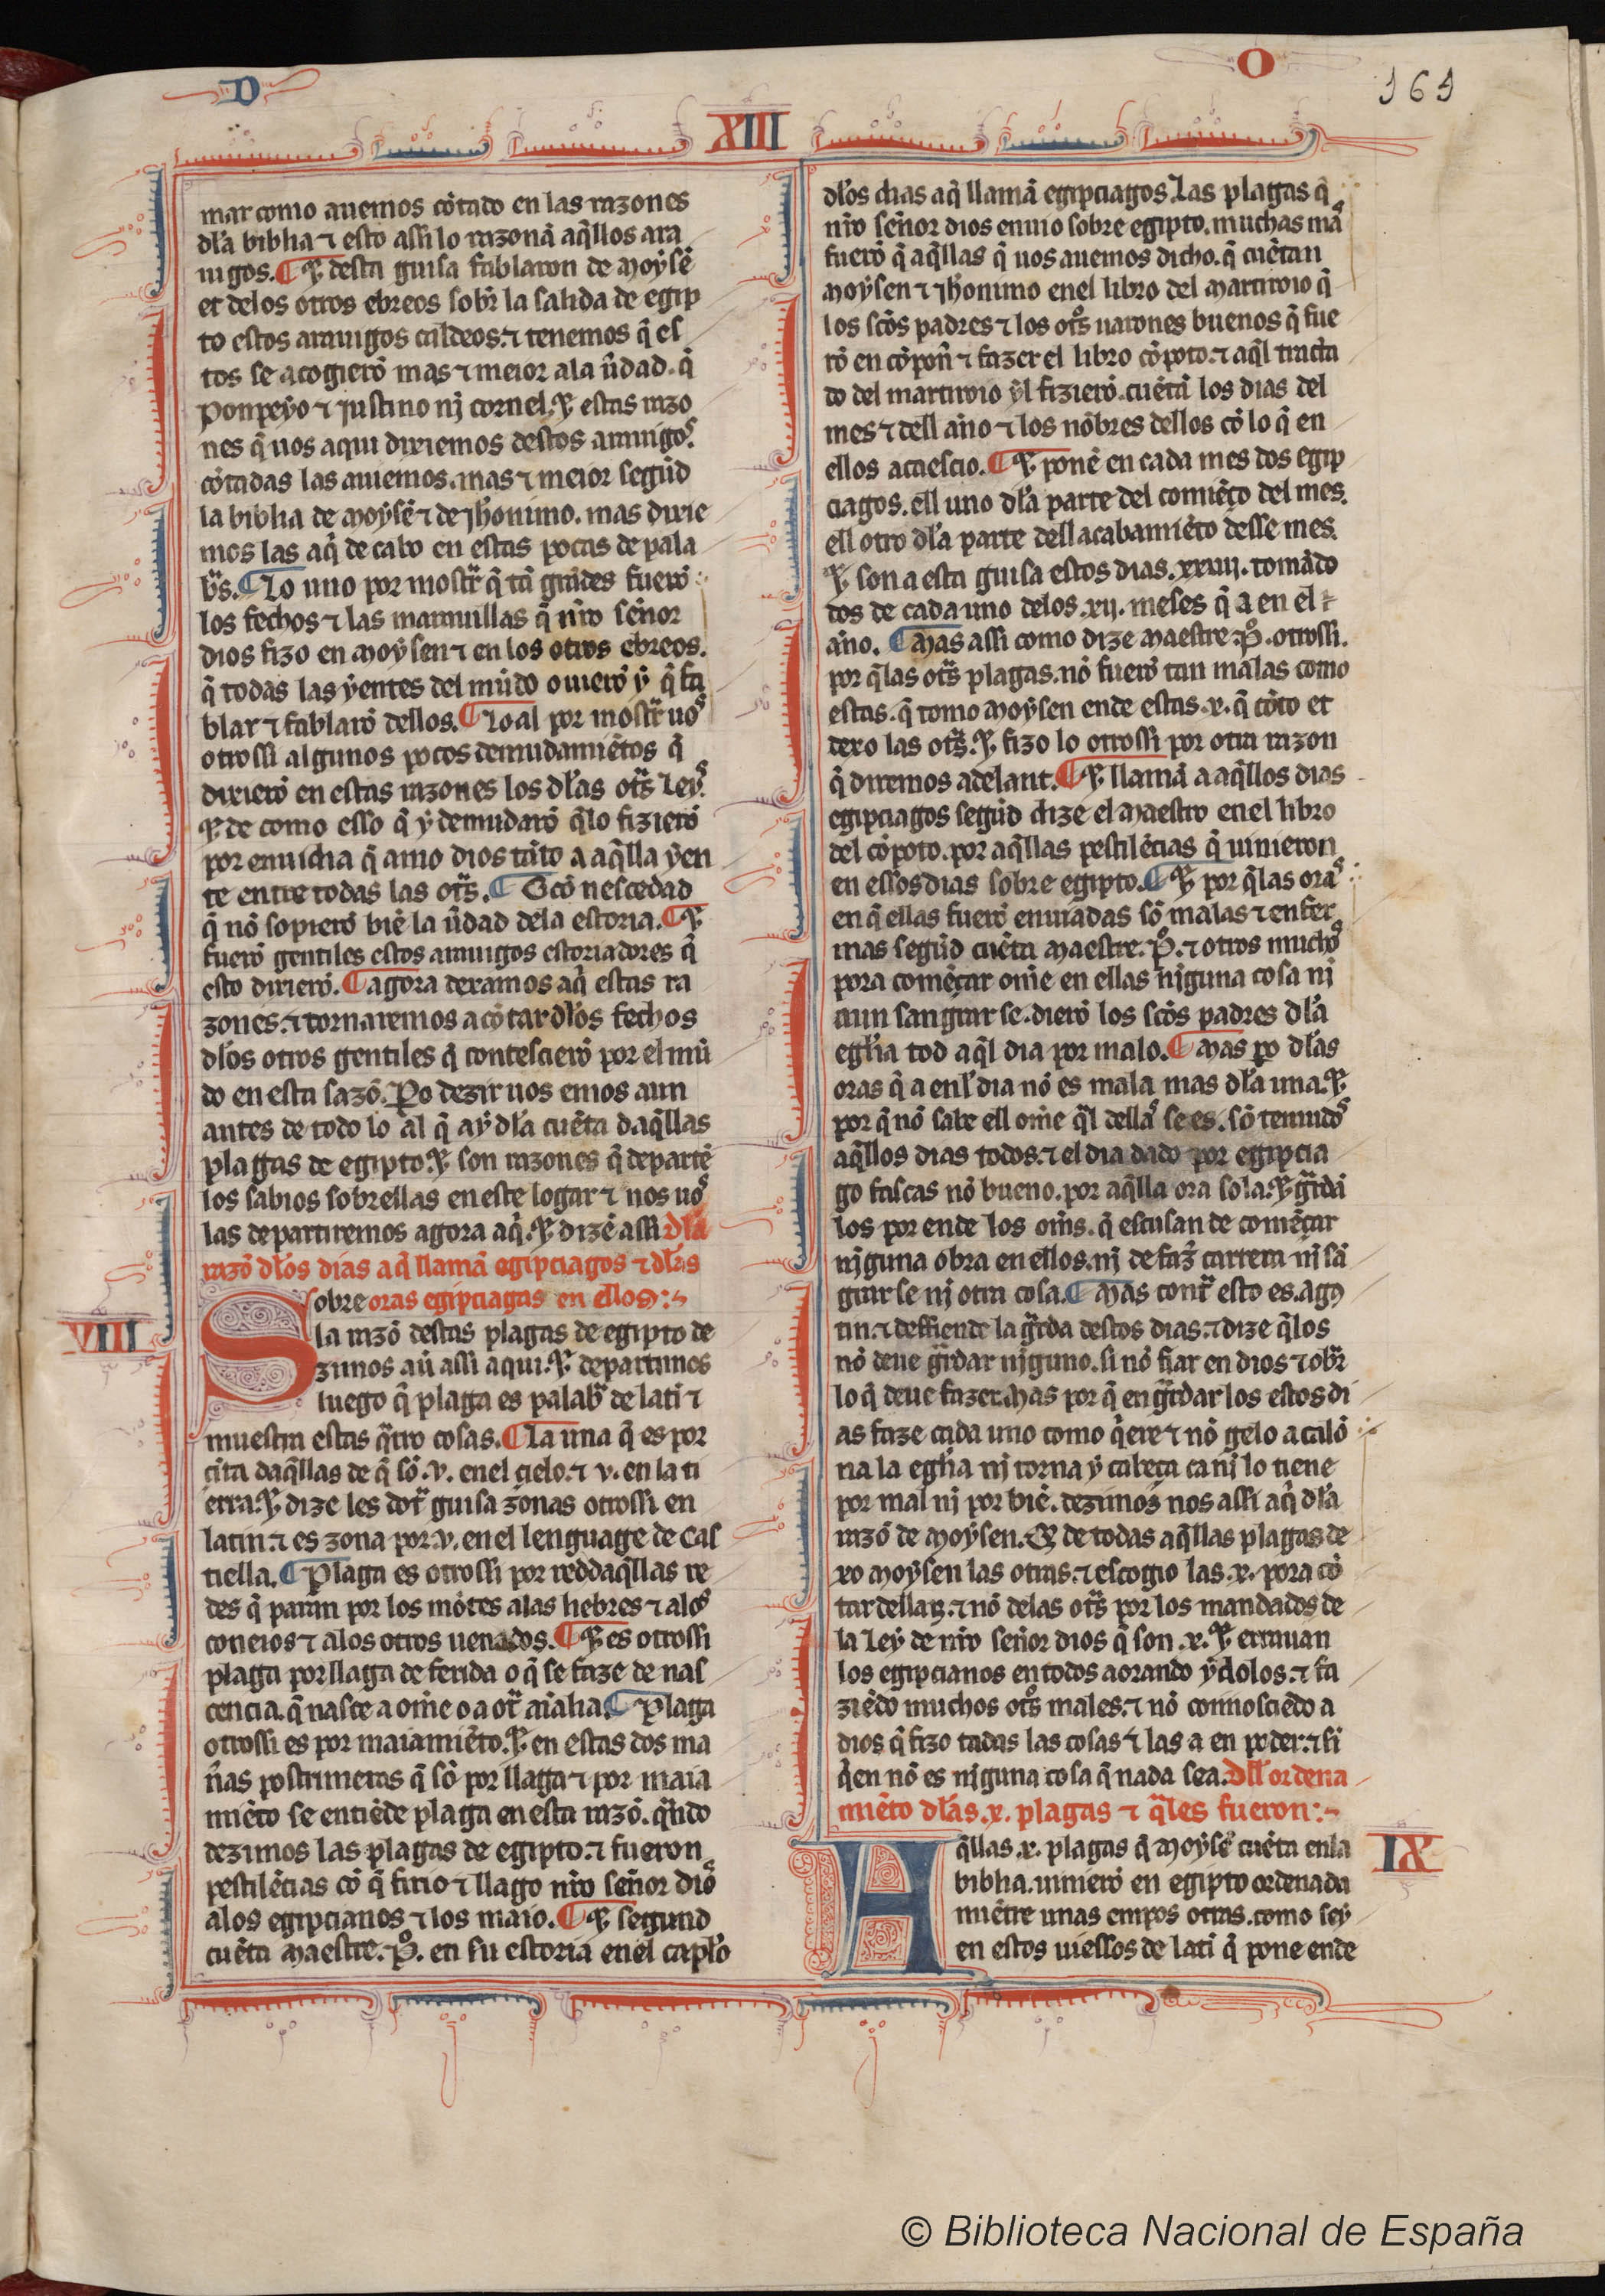 D
O
161
XIII
mar como auemos cõtado en las razones
dl̃a biblia ⁊ esto assi lo razonã aq̃llos ara
uigos. ¶ Et desta guisa fablaron de Moysẽ
et delos otros ebreos sobr̃ la salida de egip
to estos arauigos caldeos. ⁊ tenemos q̃ es
tos se acogierõ mas ⁊ meior ala ũdad. q̃
Ponpeyo ⁊ Justino nj cornel. Et estas razo
nes q̃ uos aqui dixiemos destos arauigos.
cõtadas las auiemos. mas ⁊ meior segũd
la biblia de Moysẽ ⁊ de Jhonimo. mas dixie
mos las aq̃ de cabo en estas pocas de pala
br̃s. ¶ Lo uno por mostr̃ q̃ tã grãdes fuerõ
los fechos ⁊ las marauillas q̃ nr̃o señor
dios fizo en Moysen ⁊ en los otros ebreos.
q̃ todas las yentes del mũdo ouierõ y q̃ fa
blar ⁊ fablarõ dellos. ¶ Lo al por mostr̃ uos
otrossi algunos pocos demudamiẽtos q̃
dixierõ en estas razones los dl̃as otr̃s Leys.
Et de como esso q̃ y demudarõ q̃lo fizierõ
por enuidia q̃ amo dios tãto a aq̃lla yen
te entre todas las otr̃s. ¶ O cõ nescedad
q̃ nõ sopierõ biẽ la ũdad dela estoria. ¶ Et
fuerõ gentiles estos arauigos estoriadores q̃
esto dixierõ. ¶ agora dexamos aq̃ estas ra
zones. ⁊ tornaremos a cõtar dl̃os fechos
dl̃os otros gentiles q̃ contescierõ por el mũ
do en esta sazõ. Po dezir uos emos aun
antes de todo lo al q̃ ay dl̃a cuẽta daq̃llas
plagas de egipto. Et son razones q̃ departẽ
los sabios sobrellas en este logar ⁊ nos uos
las departiremos agora aq̃. Et dizẽ assi dl̃a
razõ dl̃os dias a q̃ llamã egipciagos ⁊ dl̃as
oras egipciagas en ellos:
VIII
Sobre
la razõ destas plagas de egipto de
zimos aũ assi aqui. Et departimos
luego q̃ plaga es palabr̃ de latĩ ⁊
muestra estas q̃tro cosas. ¶ La una q̃ es por
cĩta daq̃llas de q̃ sõ .v. en el cielo. ⁊ v. en la ti
erra. Et dize les dotr̃ guisa zonas otrossi en
latin. ⁊ es zona por .v. en el lenguage de Cas
tiella. ¶ Plaga es otrossi por red daq̃llas re
des q̃ paran por los mõtes alas liebres ⁊ alos
coneios ⁊ alos otros uenados. ¶ Et es otrossi
plaga por llaga de ferida o q̃ se faze de nas
cencia. q̃ nasce a om̃e o a otr̃ aĩalia. ¶ Plaga
otrossi es por maiamiẽto. Et en estas dos ma
ñas postrimeras q̃ sõ por llaga ⁊ por maia
miẽto se entiẽde plaga en esta razõ. q̃ndo
dezimos las plagas de egipto. ⁊ fueron
pestilẽcias cõ q̃ firio ⁊ llago nr̃o señor dios
alos egipcianos ⁊ los maio. ¶ Et segund
cuẽta Maestre. P̊. en su estoria enel capl̃o
dl̃os dias aq̃ llamã egipciagos. Las plagas q̃
nr̃o señor dios enuio sobre egipto. muchas mas
fuerõ q̃ aq̃llas q̃ uos auemos dicho. q̃ cuẽtan
Moysen ⁊ Jhonimo enel libro del martirio q̃
los sc̃os padres ⁊ los otr̃os uarones buenos q̃ fue
rõ en cõponr̃ ⁊ fazer el libro cõpoto. ⁊ aq̃l tracta
do del martirio yl fizierõ. cuẽtã los dias del
mes ⁊ dell año ⁊ los nõbres dellos cõ lo q̃ en
ellos acaescio. ¶ Et ponẽ en cada mes dos egip
ciagos. ell uno dl̃a parte del comiẽço del mes.
ell otro dl̃a parte dell acabamiẽto desse mes.
Et son a esta guisa estos dias. xxiiij. tomãdo
dos de cada uno delos .xij. meses q̃ a en el
año. ¶ Mas assi como dize Maestre P̊. otrossi.
por q̃ las otr̃s plagas. nõ fuerõ tan malas como
estas. q̃ tomo Moysen ende estas .x. q̃ cõto et
dexo las otr̃s. Et fizo lo otrossi por otra razon
q̃ diremos adelant. ¶ Et llamã a aq̃llos dias
egipciagos segũd dize el Maestro enel libro
del cõpoto. por aq̃llas pestilẽcias q̃ uinieron
en essos dias sobre egipto. ¶ Et por q̃ las oras
en q̃ ellas fuerõ enuiadas sõ malas ⁊ enfer
mas segũd cuẽta Maestre. P̊. ⁊ otros muchos
pora comẽçar om̃e en ellas njguna cosa nj
aun sangrar se. dierõ los sc̃os padres dl̃a
egl̃ia tod aq̃l dia por malo. ¶ Mas po dl̃as
oras q̃ a enl̃ dia nõ es mala mas dl̃a una. Et
por q̃ nõ sabe ell om̃e q̃l dellas se es. sõ temudos
aq̃llos dias todos. ⁊ el dia dado por egipcia
go fascas nõ bueno. por aq̃lla ora sola. Et gr̃dã
los por ende los om̃s. q̃ escusan de comẽçar
njguna obra en ellos. nj de faz̃ carrera nj sã
grar se nj otra cosa. ¶ Mas contr̃ esto es. agus
tin. ⁊ deffiende la gr̃da destos dias. ⁊ dize q̃ los
nõ deue gr̃dar njguno. si nõ fiar en dios ⁊ obr̃
lo q̃ deue fazer. Mas por q̃ en gr̃dar los estos di
as faze cada uno como q̃ere ⁊ nõ gelo acalõ
na la egl̃ia nj torna y cabeça ca nj lo tiene
por mal nj por biẽ. dezimos nos assi aq̃ dl̃a
razõ de Moysen. Et de todas aq̃llas plagas de
xo Moysen las otras. ⁊ escogio las .x. pora cõ
tar dellas. ⁊ nõ delas otr̃s por los mandados de
la Ley de nr̃o señor dios q̃ son .x. Et errauan
los egipcianos en todos aorando ydolos. ⁊ fa
ziẽdo muchos otr̃os males. ⁊ nõ connosciẽdo a
dios q̃ fizo todas las cosas ⁊ las a en poder. ⁊ si
q̃en nõ es njguna cosa q̃ nada sea. dell ordena
miẽto dl̃as .x. plagas ⁊ q̃les fueron:
IX
Aq̃llas .x. plagas q̃ Moysẽ cuẽta enla
biblia. uinierõ en egipto ordenada
miẽtre unas empos otras. como sey
en estos uiessos de latĩ q̃ pone ende
© Biblioteca Nacional de España